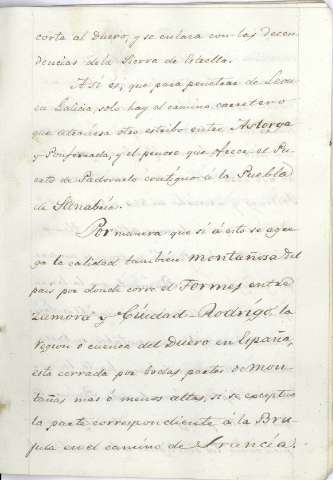 corta al Duero, y se enlaza con las descen
dencias de la Sierra de Estrella.
Asi es, que para penetrar de Leon
en Galicia, solo hay el camino carretero
que atraviesa otro estribo entre Astorga
y Ponferrada, y el penoso que ofrece el Pu
erto de Padornelo contiguo á la Puebla
de Sanabria.
Por manera que si á esto se agre
ga la calidad tambien montañosa del
pais por donde corre el Tormes entre
Zamora y Ciudad-Rodrigo, la
region ó cuenca del Duero en España,
esta cerrada por todas partes de mon
tañas mas ó menos altas, si se exceptua
la parte correspondiente á la Bru
jula en el camino de Francia.